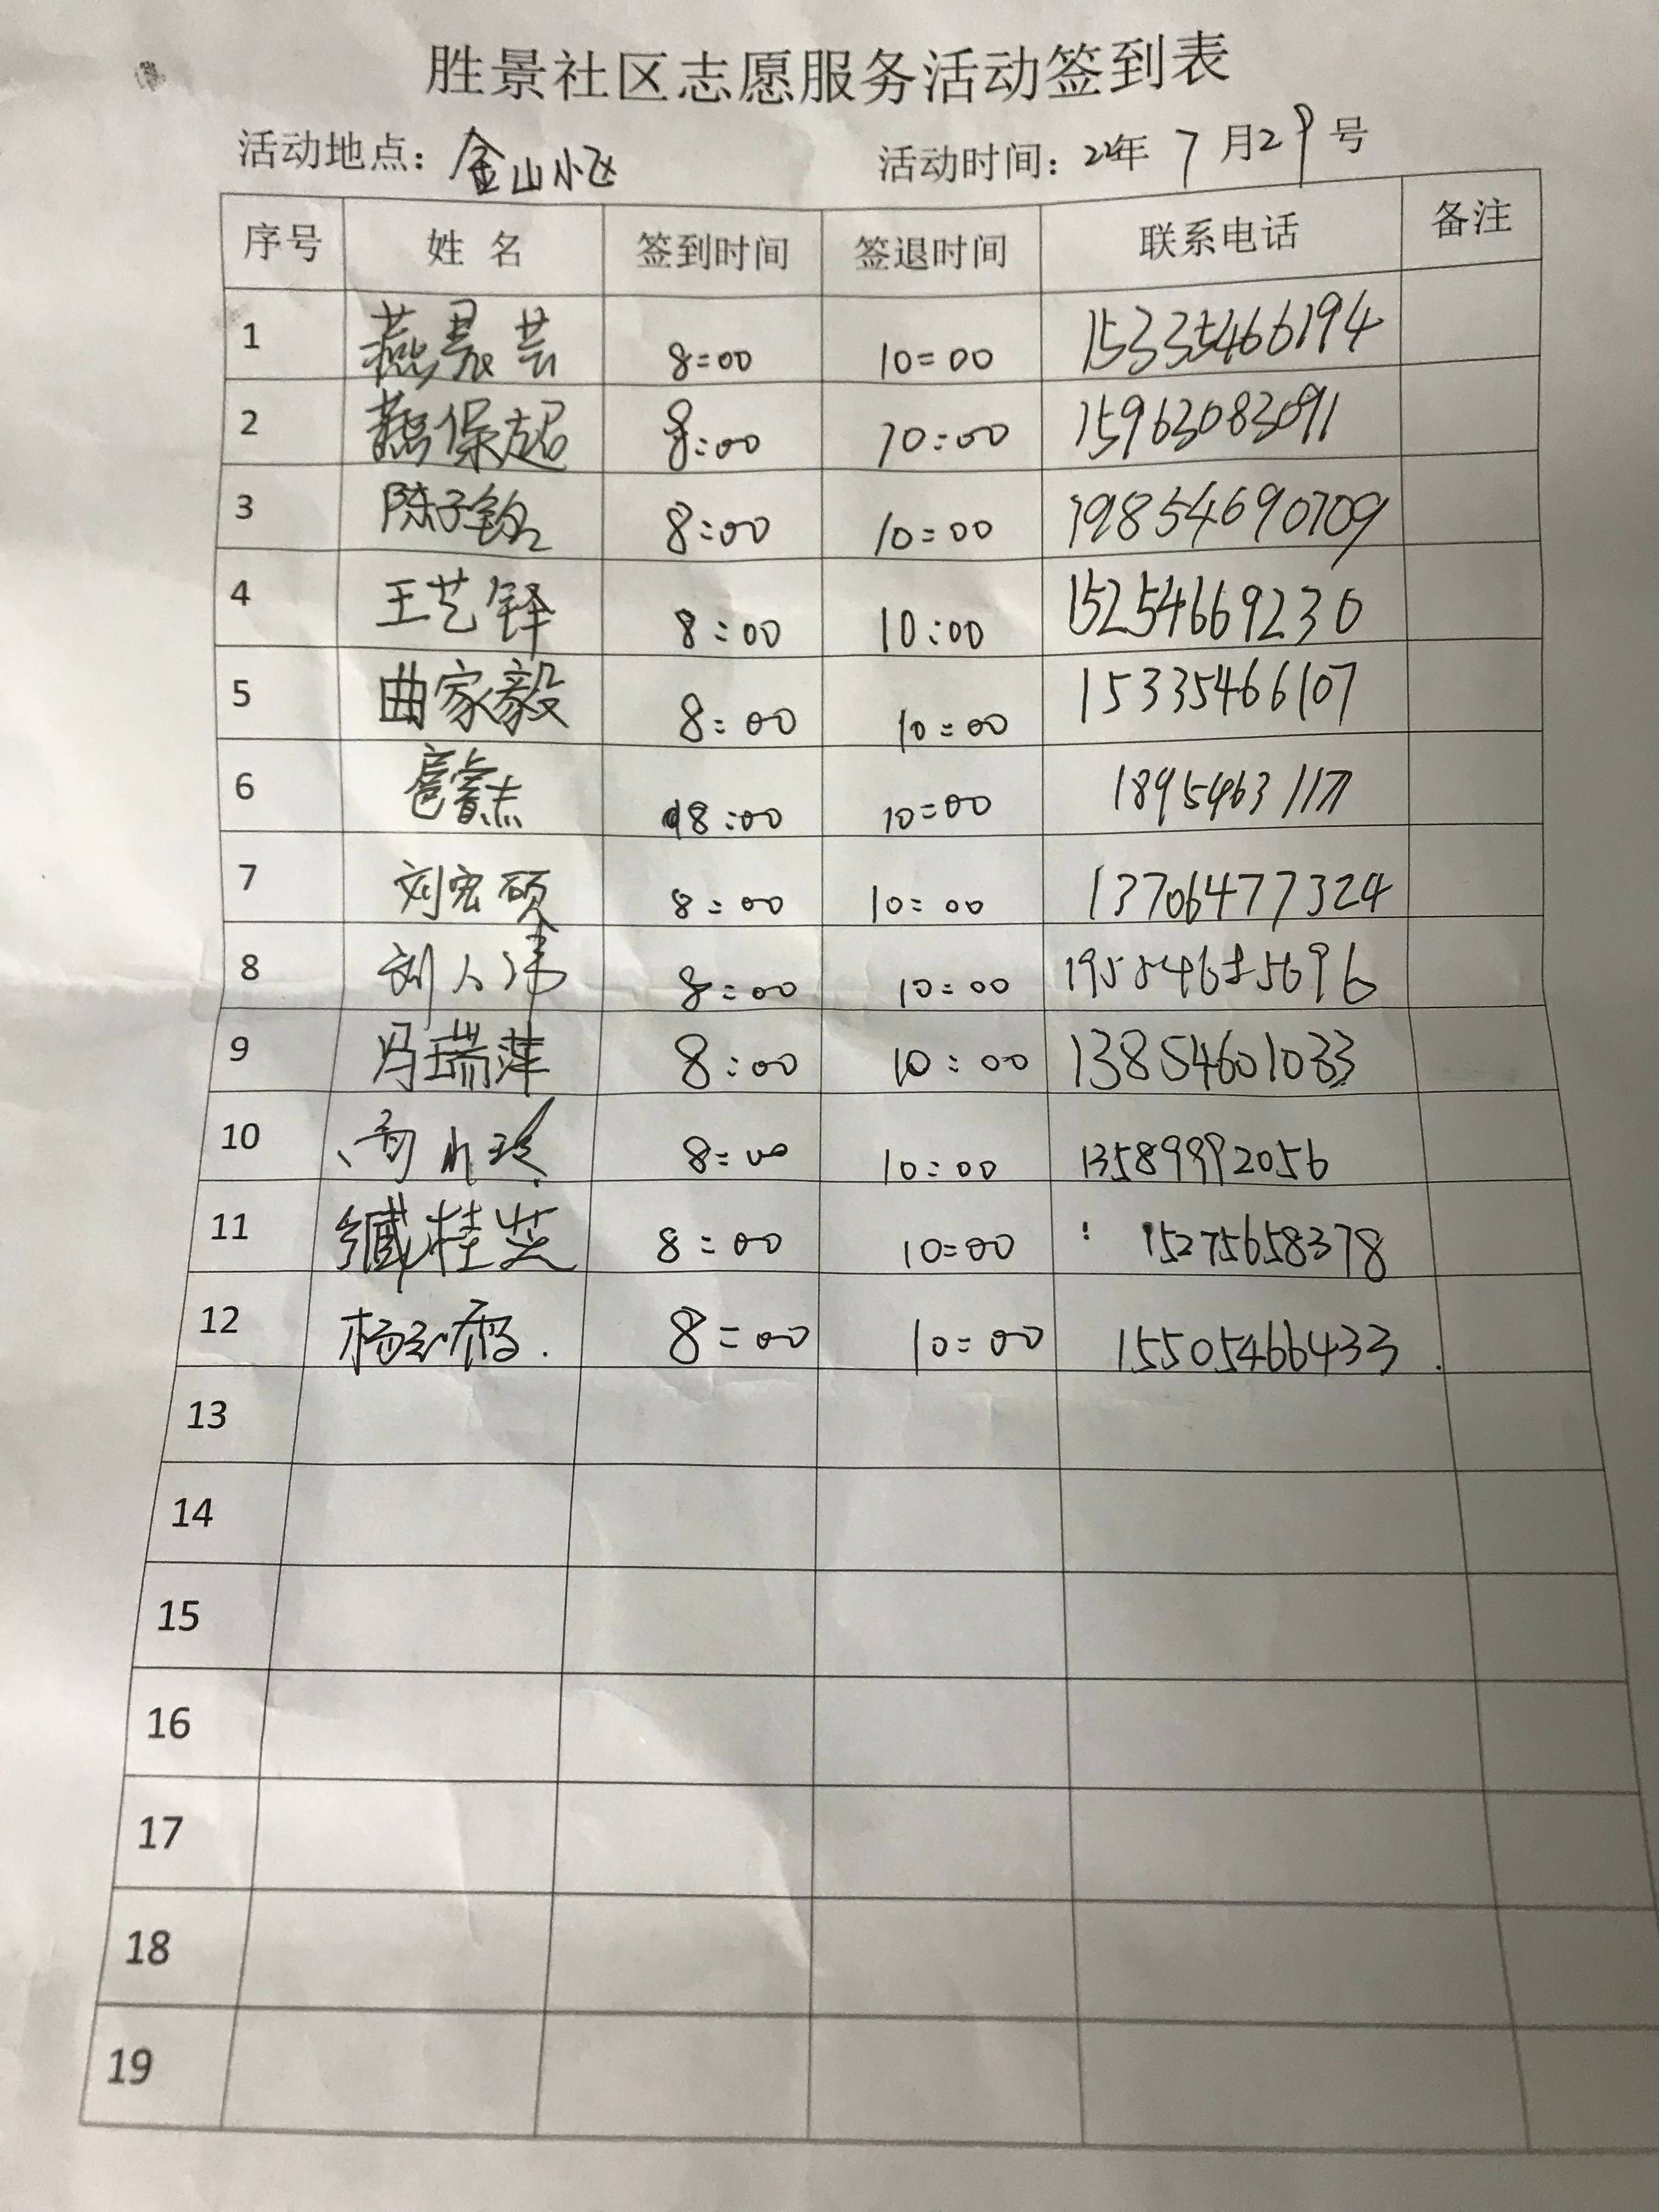 胜景社区志愿服务活动签到表
活动地点：金山小区 活动时间：22年 7 月29号
序号 姓 名 签到时间 签退时间 联系电话 备注
1 燕景芸 8:00 10:00 15335466194
2 燕保超 8:00 10:00 15963083091
3 陈子铭 8:00 10:00 19854690709
4 王艺铎 8:00 10:00 15254669230
5 曲家毅 8:00 10:00 15335466107
6 8:00 10:00
7 刘宏硕 8:00 10:00 13706477324
8 刘人 8:00 10:00
9 冯瑞萍 8:00 10:00 13854601033
10 8:00 10:00 13589992056
11 桂芝 8:00 10:00 15275658378
12 杨 8:00 10:00 15505466433
13
14
15
16
17
18
19